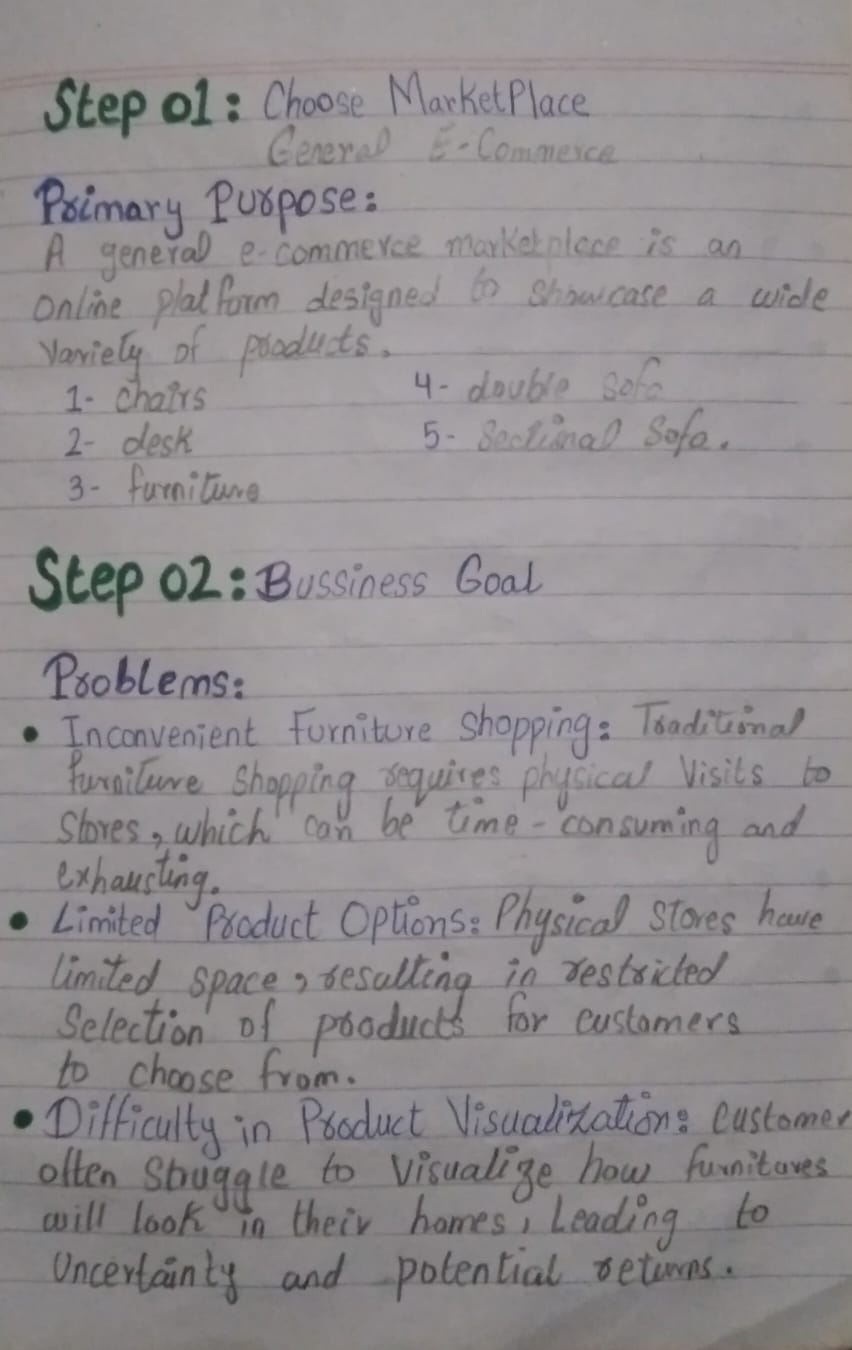 Step 01: Choose MarketPlace
General E-Commerce
Primary Purpose:
A general e-commerce marketplace is an
Online platform designed to showcase a wide
Variety of products.
1- chairs 4- double sofa
2- desk 5- Sectional Sofa.
3- furniture
Step 02: Bussiness Goal
Problems:
• Inconvenient Furniture Shopping: Traditional
furniture shopping requires physical Visits to
Stores, which can be time-consuming and
exhausting.
• Limited Product Options: Physical stores have
limited space, resulting in restricted
Selection of products for customers
to choose from.
• Difficulty in Product Visualization: Customer
often Struggle to Visualize how furnitures
will look in their homes, Leading to
Uncertainty and potential returns.